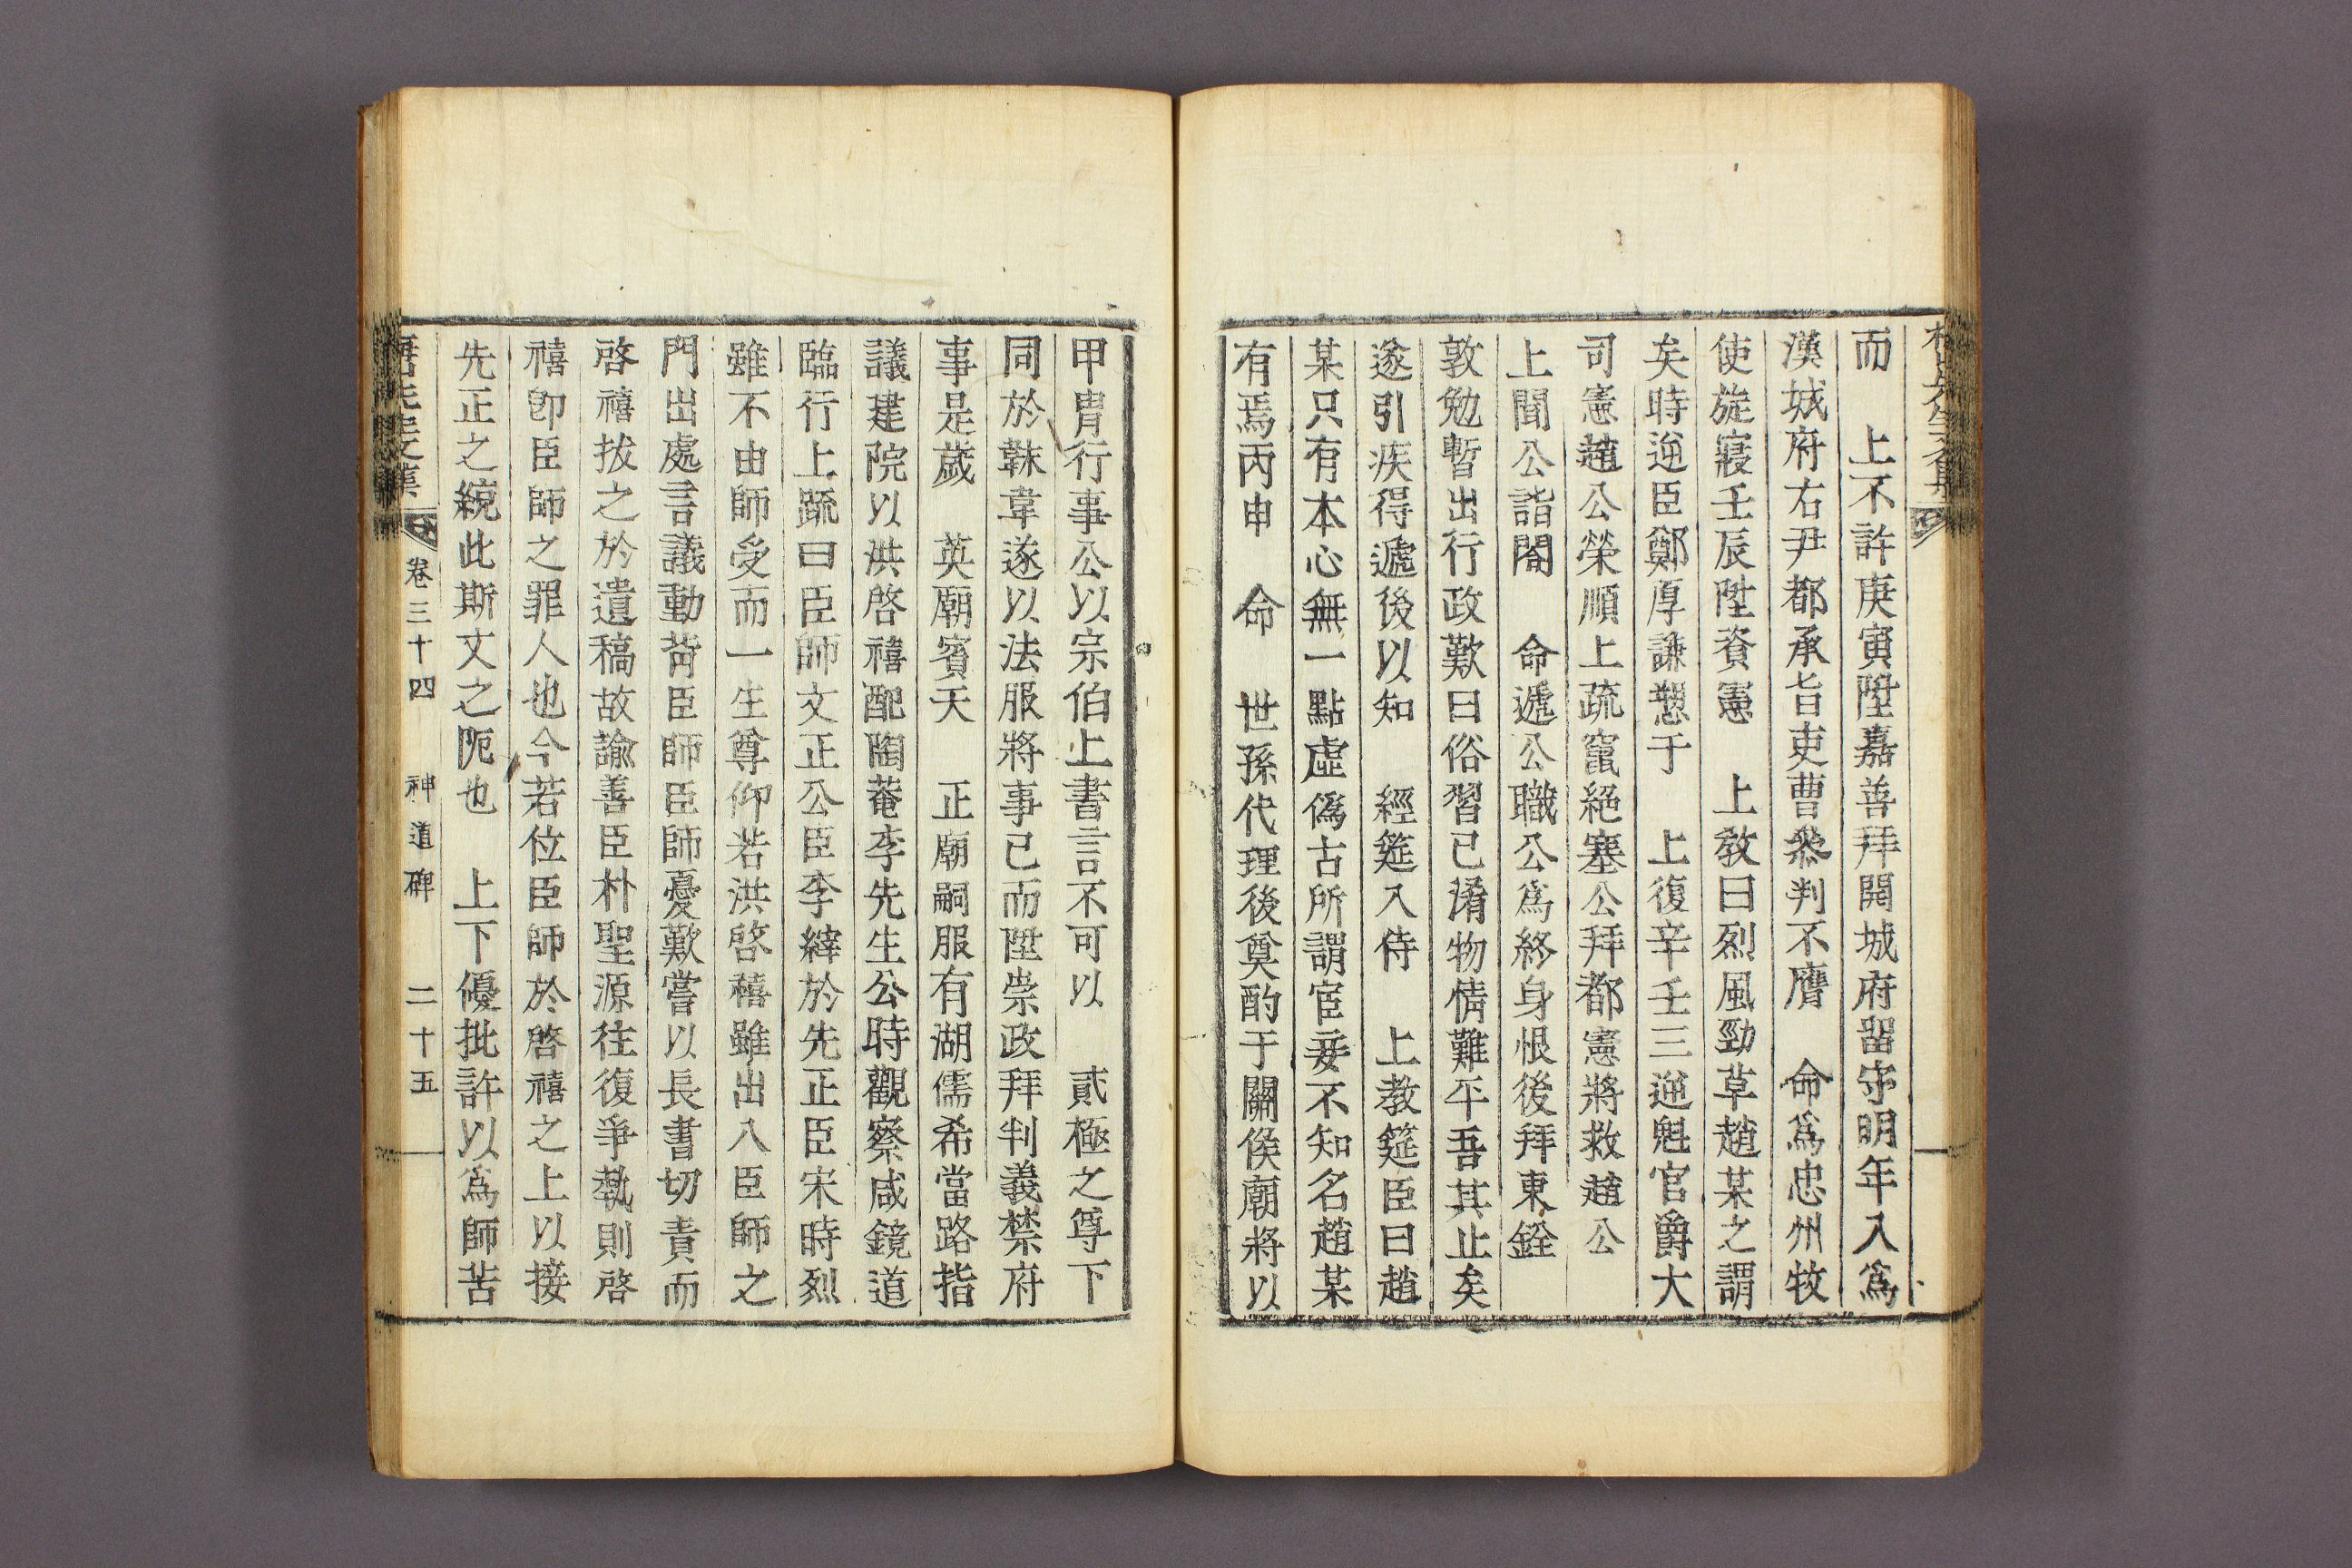 而　上不許庚寅陞嘉善拜開城府留守明年入爲
漢城府右尹都承旨吏曹叅判不膺　命爲忠州牧
使旋寢壬辰陞資憲　上敎曰烈風勁草趙某之謂
矣時逆臣鄭厚謙愬于　上復辛壬三逆魁官爵大
司憲趙公榮順上疏竄絕塞公拜都憲將救趙公
上聞公詣閤　命遞公職公爲終身恨後拜東銓
敦勉暫出行政歎曰俗習已淆物情難平吾其止矣
遂引疾得遞後以知　經筵入侍　上教筵臣曰趙
某只有本心無一點虛僞古所謂宦妾不知名趙某
有焉丙申　命　世孫代理後奠酌于關侯廟將以
甲冑行事公以宗伯上書言不可以　貳極之尊下
同於韎韋遂以法服將事已而陞崇政拜判義禁府
事是歲　英廟賓天　正廟嗣服有湖儒希當路指
議建院以洪啓禧配陶菴李先生公時觀察咸鏡道
臨行上疏曰臣師文正公臣李縡於先正臣宋時烈
雖不由師受而一生尊仰若洪啓禧雖出入臣師之
門出處言議動背臣師臣師憂歎嘗以長書切責而
啓禧拔之於遺稿故諭善臣朴聖源往復爭執則啓
禧卽臣師之罪人也今若位臣師於啓禧之上以接
先正之統此斯文之阨也　上下優批許以爲師苦
先生文集　卷三十四　神道碑　二十五